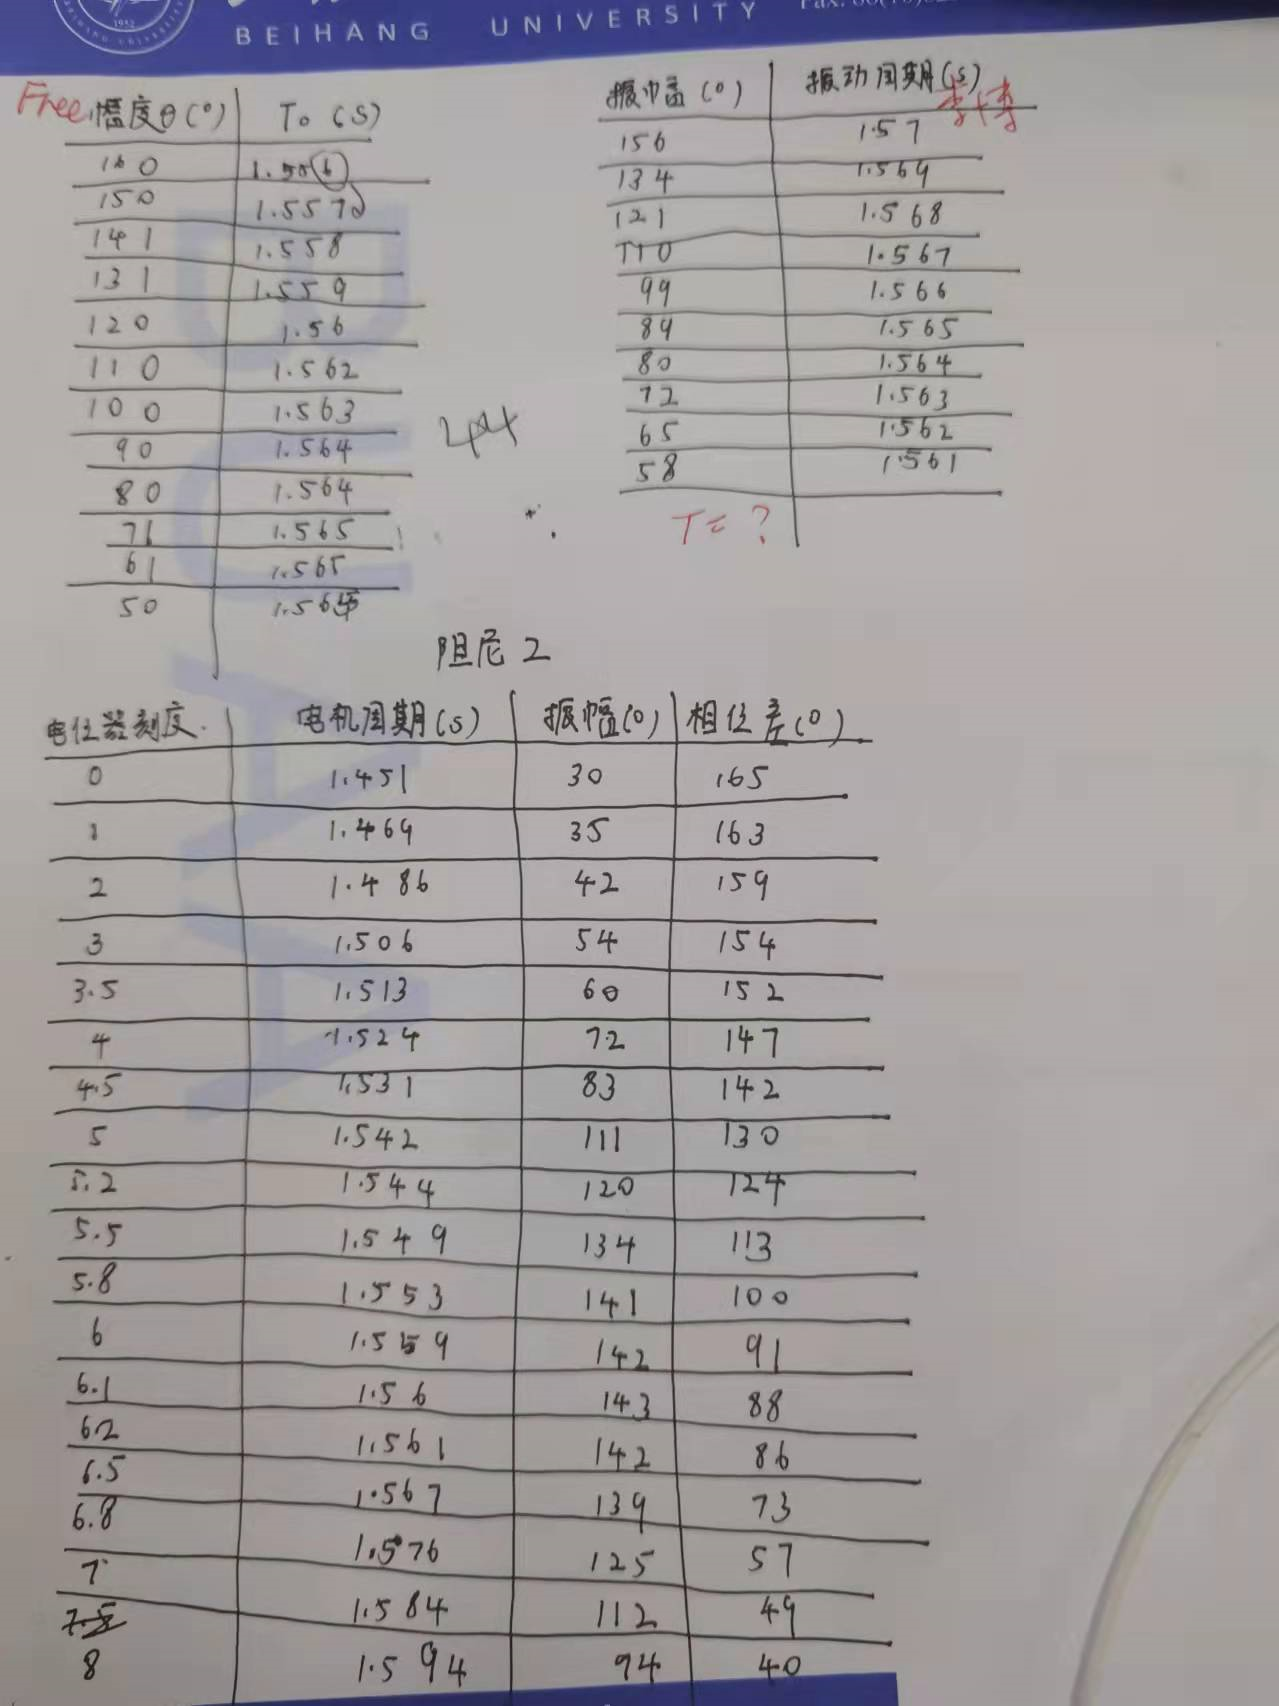 BEIHANG UNIVERSITY
Free 幅度θ(°) T₀(S)
160 1.556
150 1.557
141 1.558
131 1.559
120 1.56
110 1.562
100 1.563
90 1.564
80 1.564
71 1.565
61 1.565
50 1.565
振幅(°) 振动周期(s)
156 1.57
134 1.569
121 1.568
110 1.567
99 1.566
89 1.565
80 1.564
72 1.563
65 1.562
58 1.561
T=?
阻尼2
电位器刻度 电机周期(s) 振幅(°) 相位差(°)
0 1.451 30 165
1 1.469 35 163
2 1.486 42 159
3 1.506 54 154
3.5 1.513 60 152
4 1.524 72 147
4.5 1.531 83 142
5 1.542 111 130
5.2 1.544 120 124
5.5 1.549 134 113
5.8 1.553 141 100
6 1.559 142 91
6.1 1.56 143 88
6.2 1.561 142 86
6.5 1.567 139 73
6.8 1.576 125 57
7 1.584 112 49
7.5
8 1.594 94 40